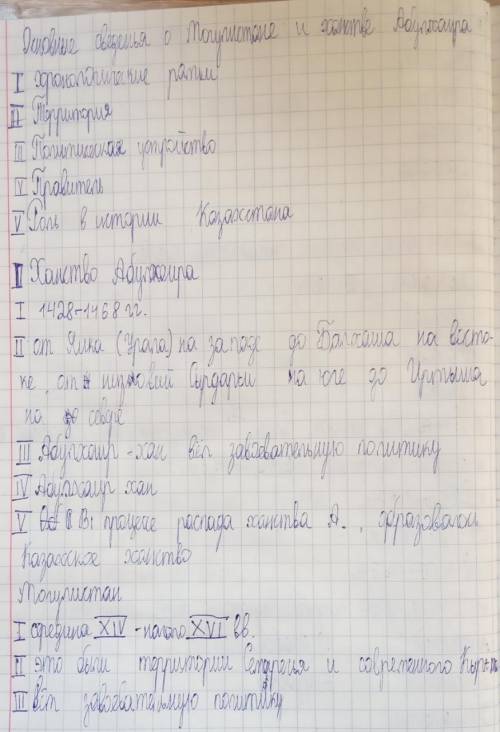 Основные сведенья о Могулистане и ханстве Абулхаира
I хронологические рамки
II Территория
III Политическая устройство
V Правитель
V Роль в истории Казахстана
II Ханство Абулхаира
I 1428-1468 гг.
II от Яика (Урала) на западе до Балхаша на восто-
ке, от низовий Сырдарьи на юге до Иртыша
на севере
III Абулхаир-хан вёл завоевательную политику
IV Абулхаир хан
V В процессе распада ханства А., образовалось
Казахское ханство
Могулистан
I середина XIV - начало XVI вв.
II это были территории и современного
III Вёл завоевательную политику